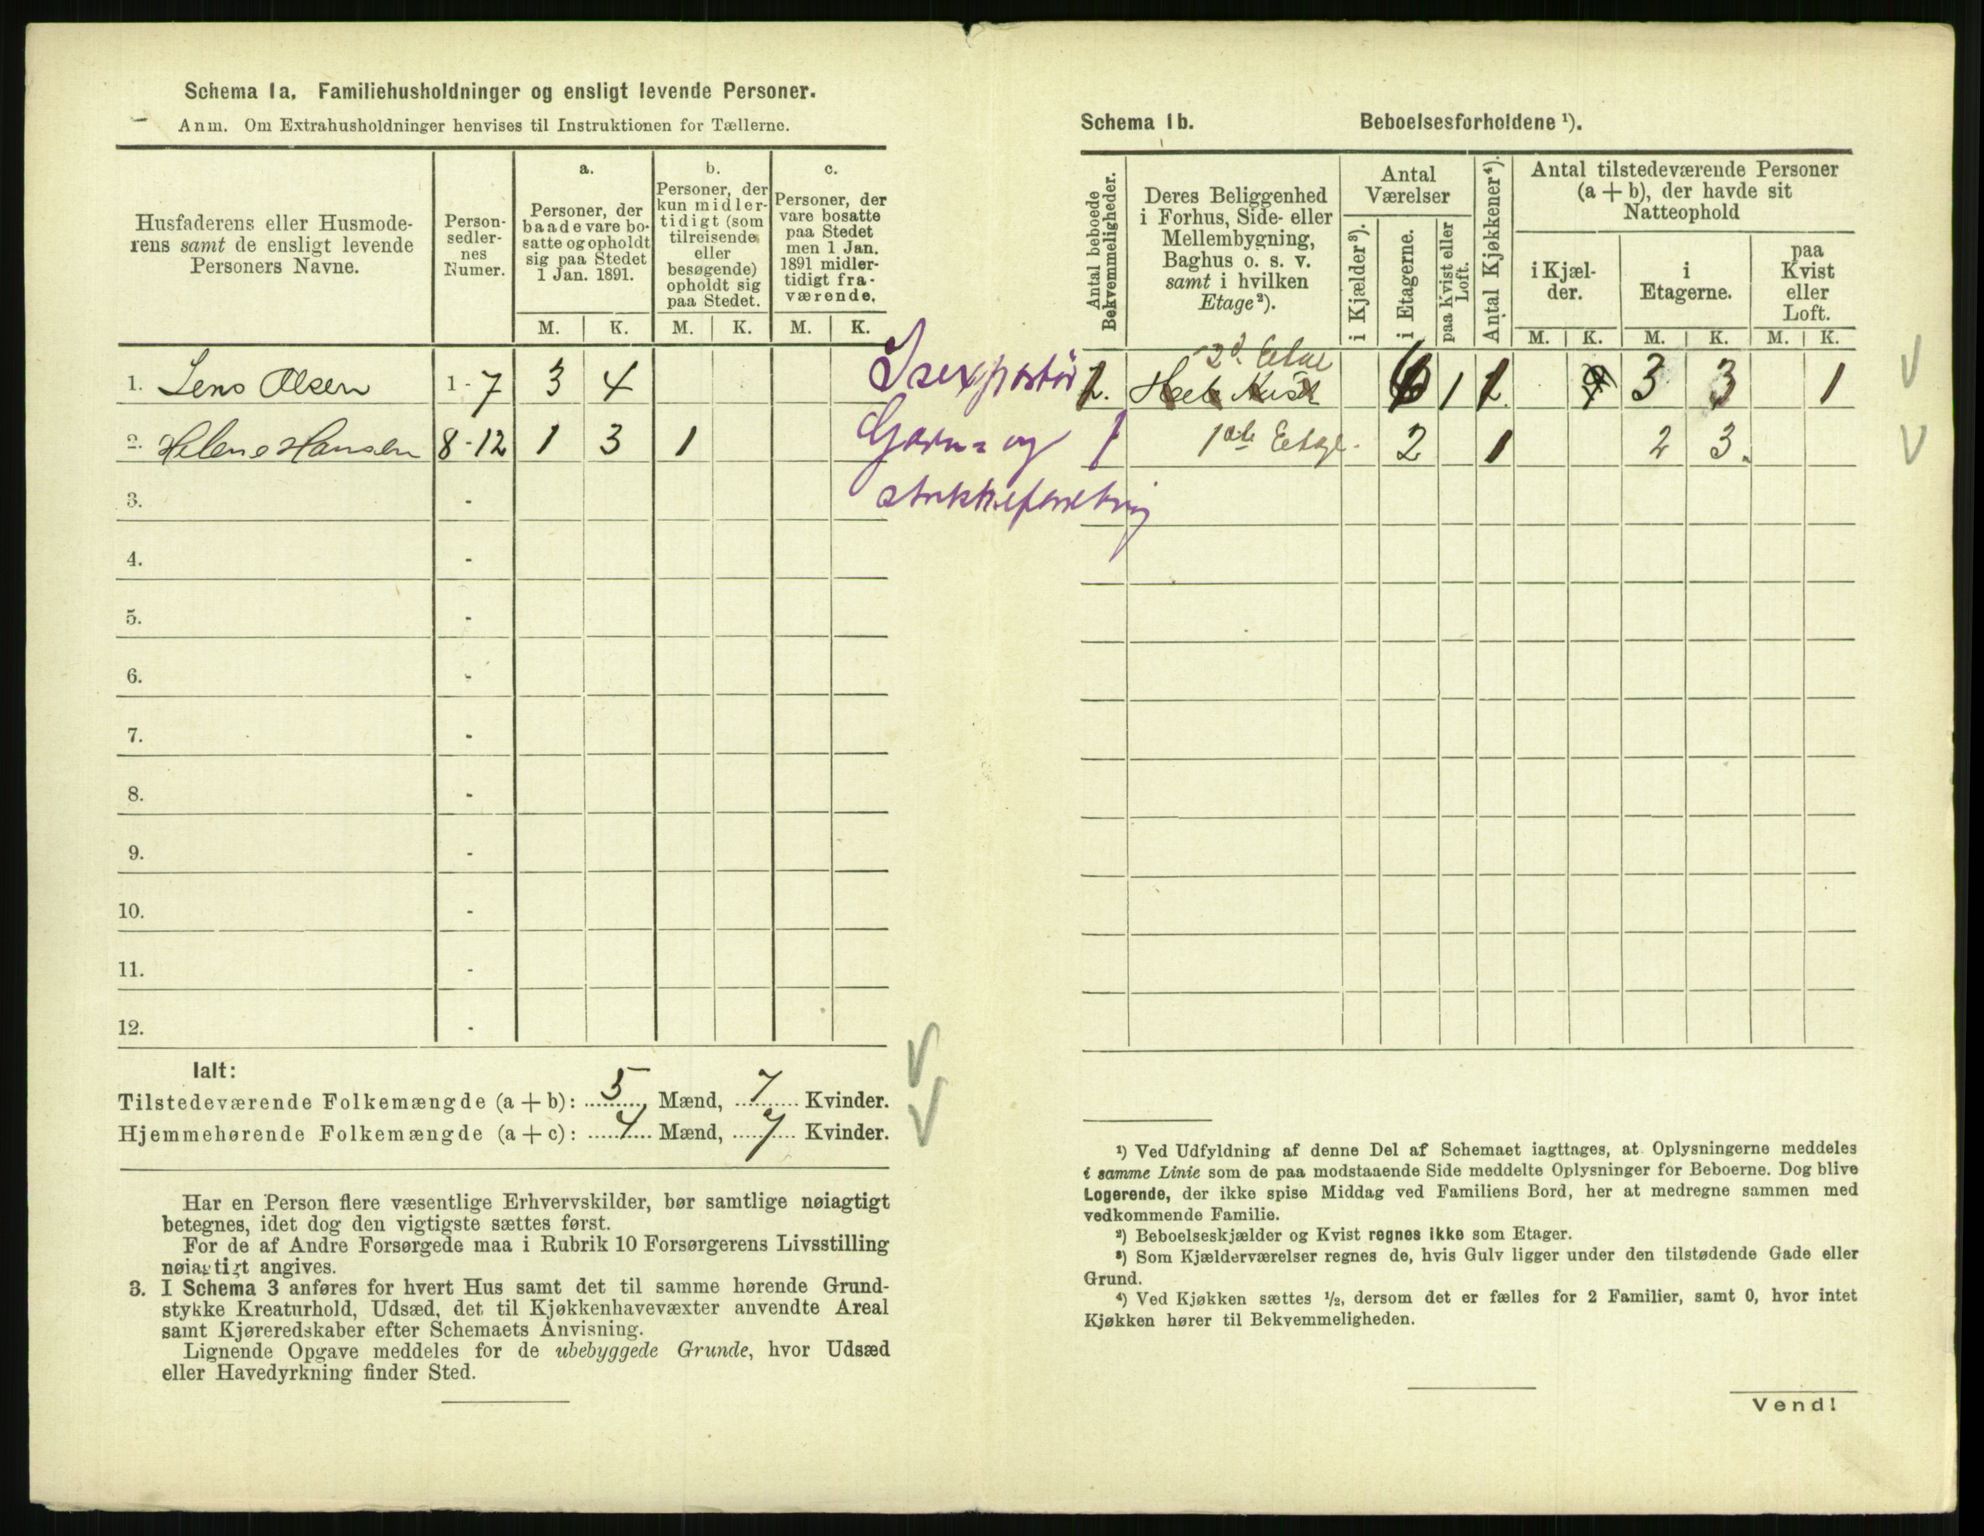 Schema 1a. Familiehusholdninger og ensligt levende Personer.
Anm. Om Extrahusholdninger henvises til Instruktionen for Tællerne.
Husfaderens eller Husmoderens samt de ensligt levende Personers Navne.
Personsedlernes Numer.
a.
Personer, der baade vare bosatte og opholdt sig paa Stedet 1 Jan. 1891.
b.
Personer, der kun midlertidigt (som tilreisende eller besøgende) opholdt sig paa Stedet.
c.
Personer, der vare bosatte paa Stedet men 1 Jan. 1891 midlertidigt fraværende.
M. K. M. K. M. K.
1. Jens Olsen 1-7 3 4
2. Helene Hansen 8-12 1 3 1
3. -
4. -
5. -
6. -
7. -
8. -
9. -
10. -
11. -
12. -
Isexportør
Garn= og
strikkeforretning
Ialt:
Tilstedeværende Folkemængde (a + b): 5 Mænd, 7 Kvinder.
Hjemmehørende Folkemængde (a + c): 4 Mænd, 7 Kvinder.
Har en Person flere væsentlige Erhvervskilder, bør samtlige nøiagtigt
betegnes, idet dog den vigtigste sættes først.
For de af Andre Forsørgede maa i Rubrik 10 Forsørgerens Livsstilling
nøiagtigt angives.
3. I Schema 3 anføres for hvert Hus samt det til samme hørende Grund-
stykke Kreaturhold, Udsæd, det til Kjøkkenhavevæxter anvendte Areal
samt Kjøreredskaber efter Schemaets Anvisning.
Lignende Opgave meddeles for de ubebyggede Grunde, hvor Udsæd
eller Havedyrkning finder Sted.
Schema 1b. Beboelsesforholdene ¹).
Antal beboede Bekvemmeligheder.
Deres Beliggenhed i Forhus, Side- eller Mellembygning, Baghus o. s. v. samt i hvilken Etage²).
Antal Værelser
i Kjælder³).
i Etagerne.
paa Kvist eller Loft.
Antal Kjøkkener⁴).
Antal tilstedeværende Personer (a + b), der havde sit Natteophold
i Kjælder.
i Etagerne.
paa Kvist eller Loft.
M. K. M. K. M. K.
1. 2d. Etage 6 1 1 3 3 1
1 1ste Etage. 2 1 2 3
¹) Ved Udfyldning af denne Del af Schemaet iagttages, at Oplysningerne meddeles
i samme Linie som de paa modstaaende Side meddelte Oplysninger for Beboerne. Dog blive
Logerende, der ikke spise Middag ved Familiens Bord, her at medregne sammen med
vedkommende Familie.
²) Beboelseskjælder og Kvist regnes ikke som Etager.
³) Som Kjælderværelser regnes de, hvis Gulv ligger under den tilstødende Gade eller
Grund.
⁴) Ved Kjøkken sættes ½, dersom det er fælles for 2 Familier, samt 0, hvor intet
Kjøkken hører til Bekvemmeligheden.
Vend!